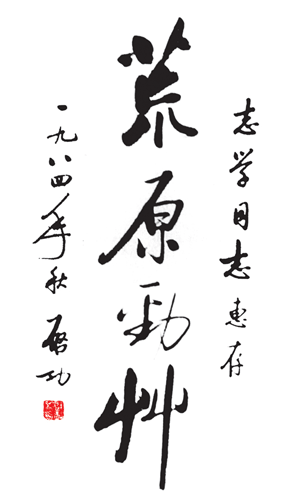 志学同志惠存
荒原勁艸
一九八四年秋 啓功